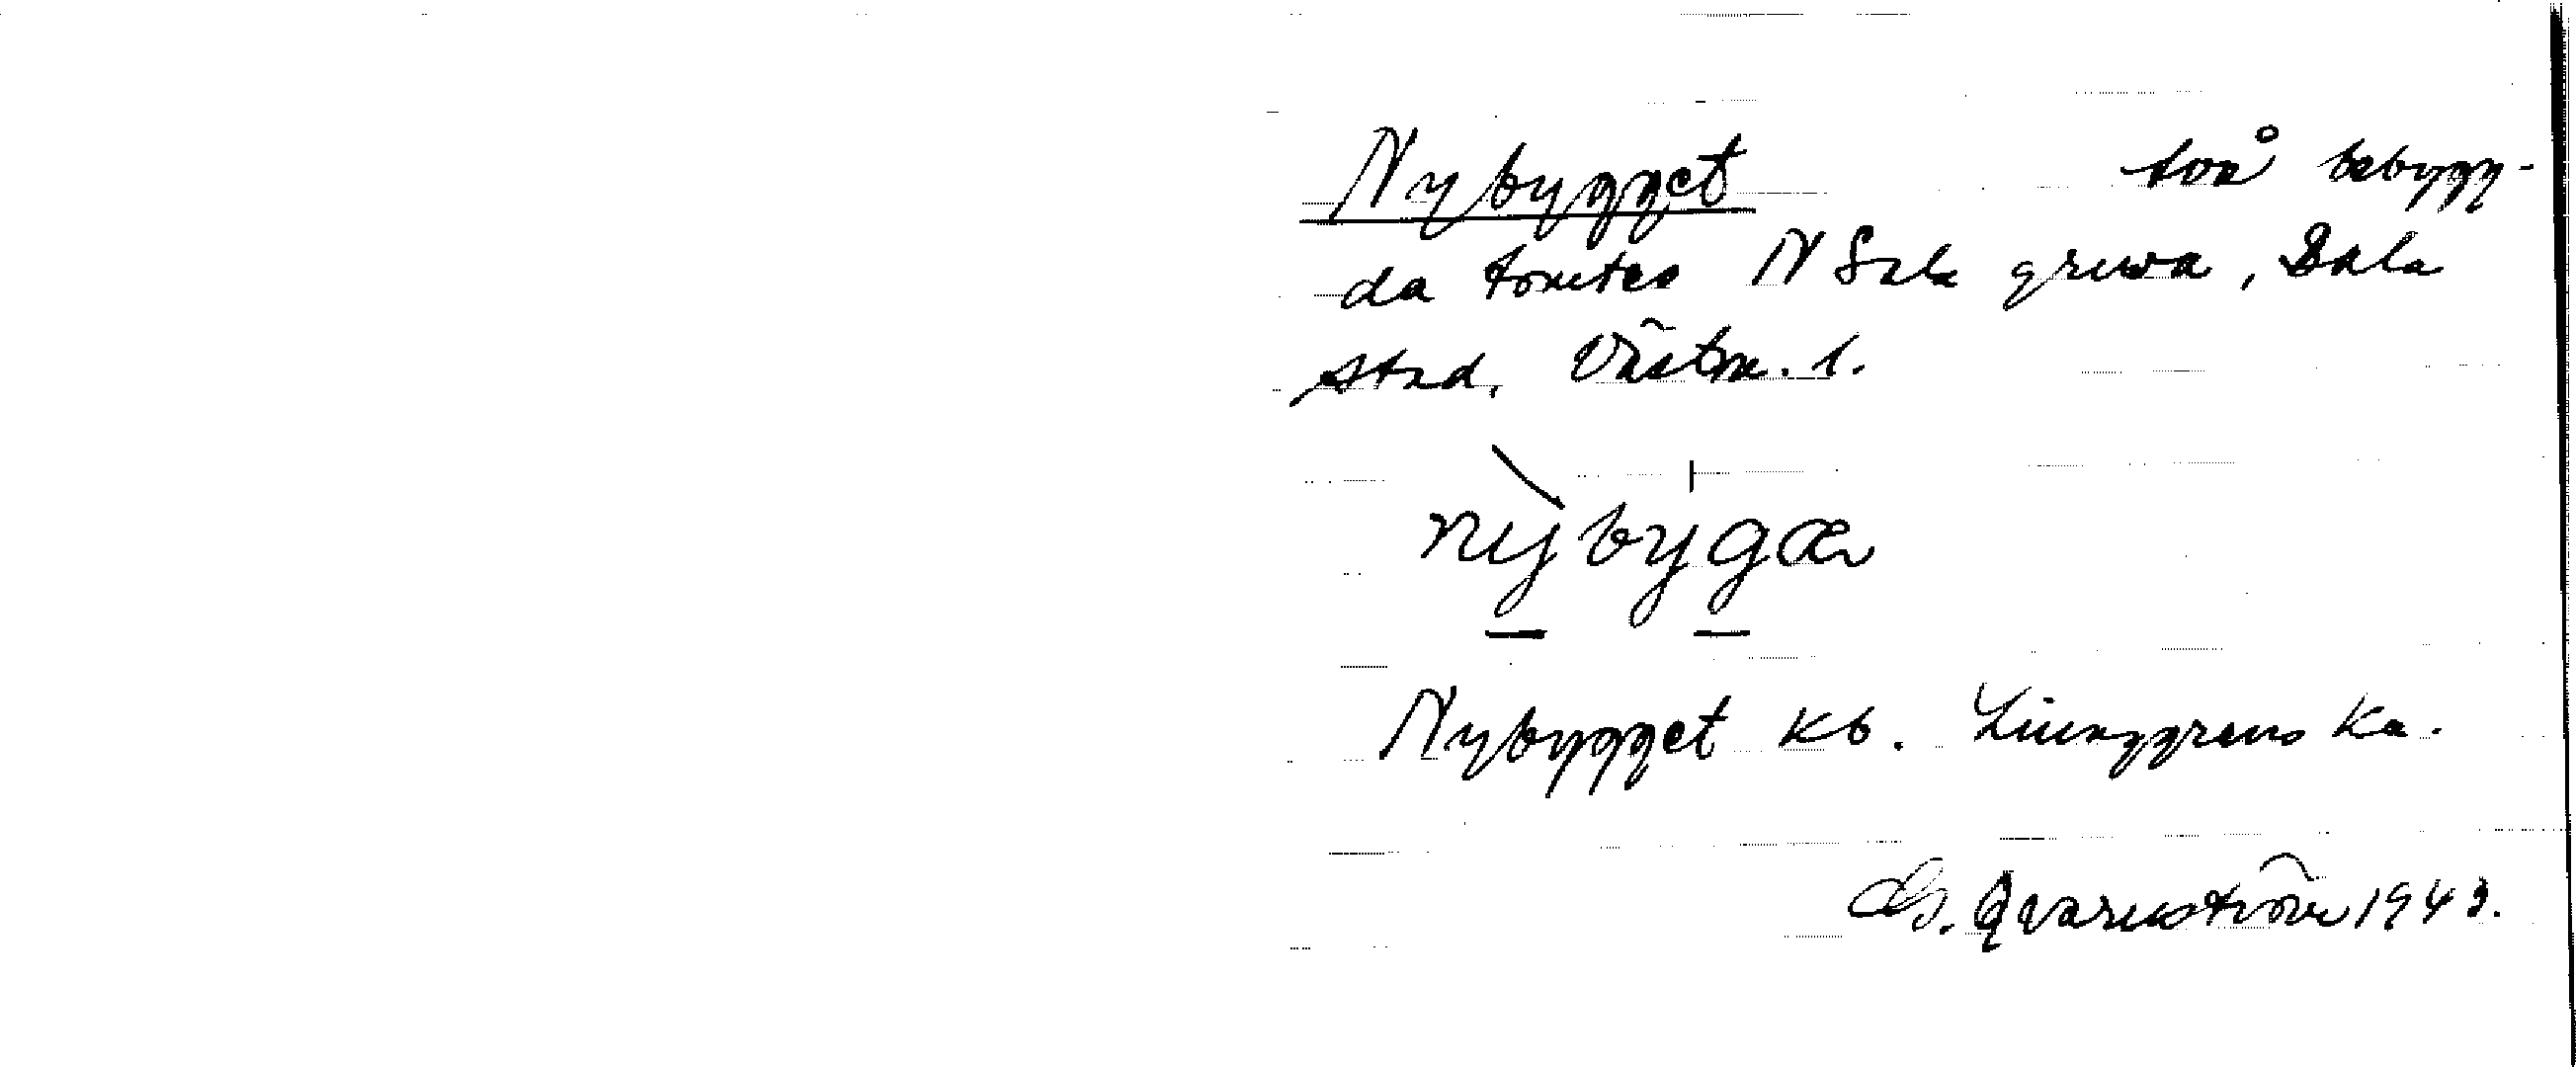 Nybygget två bebygg-
da tomter N Sala gruva, Sala
stad, Västm. l.
nybygæ
Nybygget kb. Ljunggrens Ka.
G. Qvarnström 1943.